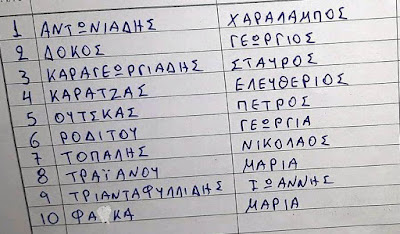 1 ΑΝΤΩΝΙΑΔΗΣ ΧΑΡΑΛΑΜΠΟΣ
2 ΔΟΚΟΣ ΓΕΩΡΓΙΟΣ
3 ΚΑΡΑΓΕΩΡΓΙΑΔΗΣ ΣΤΑΥΡΟΣ
4 ΚΑΡΑΤΖΑΣ ΕΛΕΥΘΕΡΙΟΣ
5 ΟΥΤΣΚΑΣ ΠΕΤΡΟΣ
6 ΡΟΔΙΤΟΥ ΓΕΩΡΓΙΑ
7 ΤΟΠΑΛΗΣ ΝΙΚΟΛΑΟΣ
8 ΤΡΑΪΑΝΟΥ ΜΑΡΙΑ
9 ΤΡΙΑΝΤΑΦΥΛΛΙΔΗΣ ΙΩΑΝΝΗΣ
10 ΜΑΡΙΑ